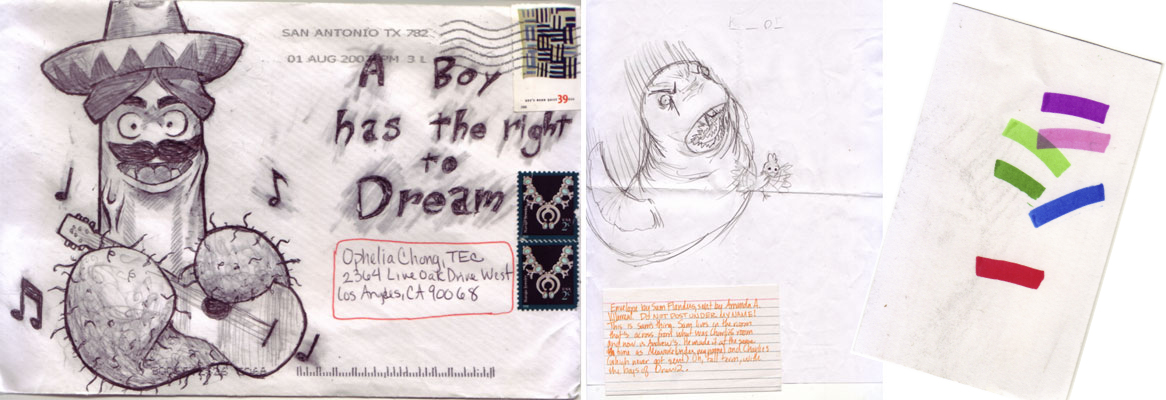 SAN ANTONIO TX 782
01 AUG 2007 PM 3 L
39
A Boy
has the right
to
Dream
Ophelia Chong, TEC
2364 Live Oak Drive West
Los Angeles, CA 90068
Envelope by Sam Flanders, sent by Amanda A.
DO NOT POST UNDER MY NAME!
This is Sam's thing. Sam lives in the room
that's across from what was Charlie's room
and now is Andrew's. He made it at the same
time as and Charlie's
(which never got sent). Uh, tall town, wide
the boys of